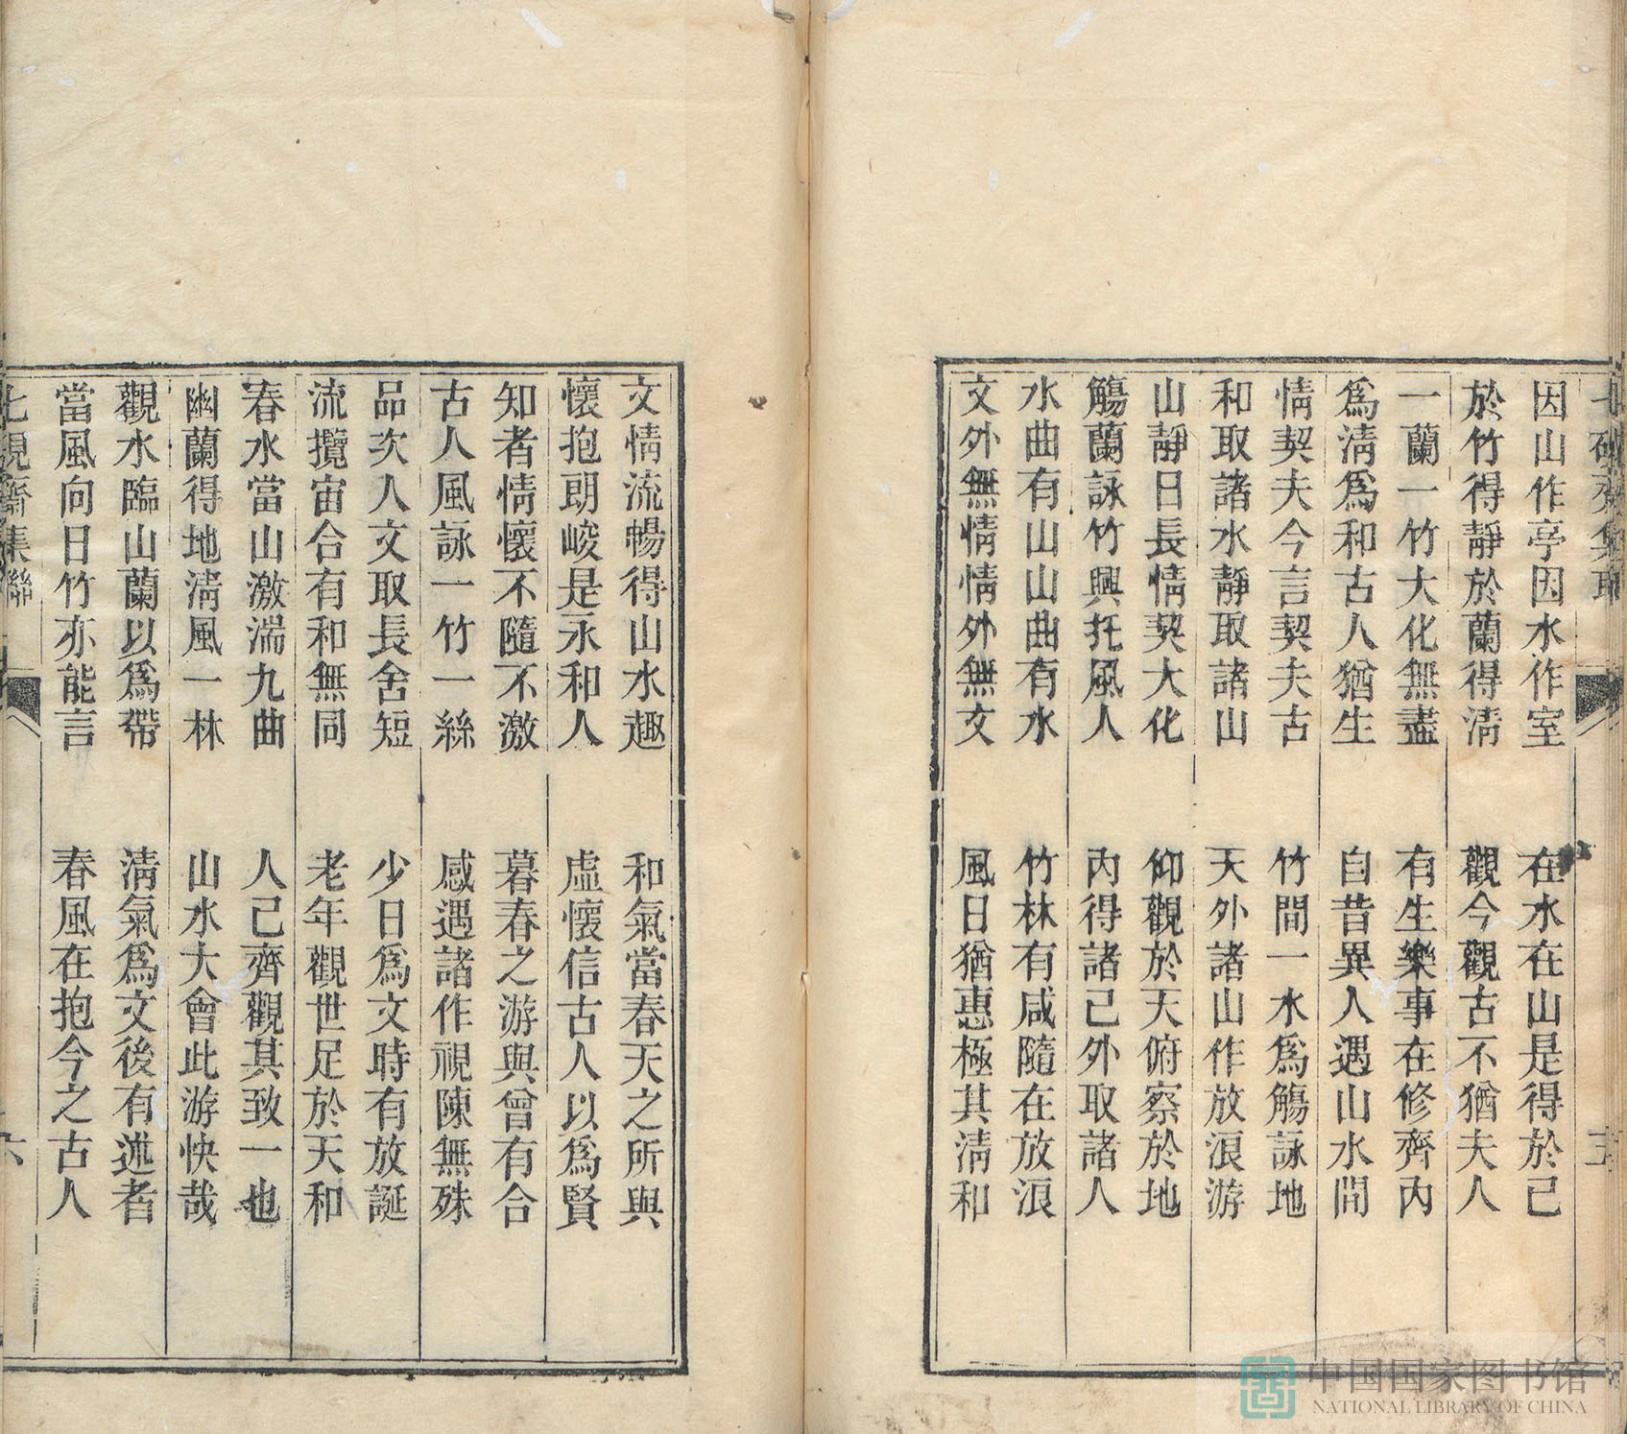 因山作亭因水作室　在水在山是得於己
於竹得靜於蘭得淸　觀今觀古不猶夫人
一蘭一竹大化無盡　有生樂事在修齊內
爲淸爲和古人猶生　自昔異人遇山水間
情契夫今言契夫古　竹間一水爲觴詠地
和取諸水靜取諸山　天外諸山作放浪游
山靜日長情契大化　仰觀於天俯察於地
觴蘭詠竹興托風人　內得諸己外取諸人
水曲有山山曲有水　竹林有咸隨在放浪
文外無情情外無文　風日猶惠極其淸和
文情流暢得山水趣　和氣當春天之所與
懷抱朗峻是永和人　虛懷信古人以爲賢
知者情懷不隨不激　暮春之游與曾有合
古人風詠一竹一絲　感遇諸作視陳無殊
品次人文取長舍短　少日爲文時有放誕
流攬宙合有和無同　老年觀世足於天和
春水當山激湍九曲　人己齊觀其致一也
幽蘭得地淸風一林　山水大會此游快哉
觀水臨山蘭以爲帶　淸氣爲文後有述者
當風向日竹亦能言　春風在抱今之古人
齋集聯　六
中国国家图书馆
NATIONAL LIBRARY OF CHINA